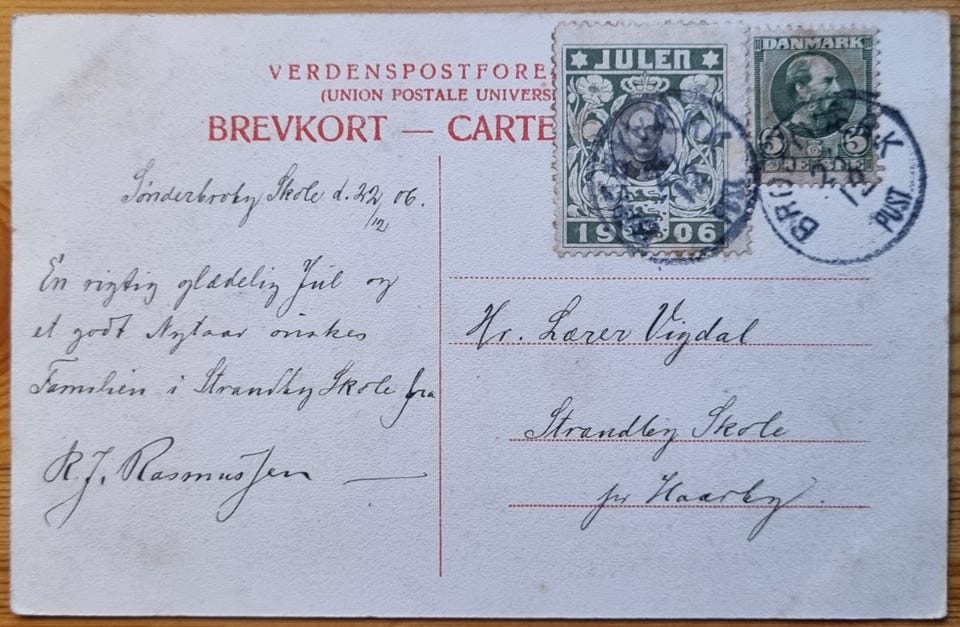 VERDENSPOSTFORE
(UNION POSTALE UNIVERS
BREVKORT — CARTE
JULEN
1906
DANMARK
5 5
ØRE
BRO
POST
Sønderbroby Skole d. 22/12 06.
En rigtig glædelig Jul og
et godt Nytaar ønskes
Familien i Strandby Skole fra
R. J. Rasmussen
Hr. Lærer Vigdal
Strandby Skole
pr Haarby.